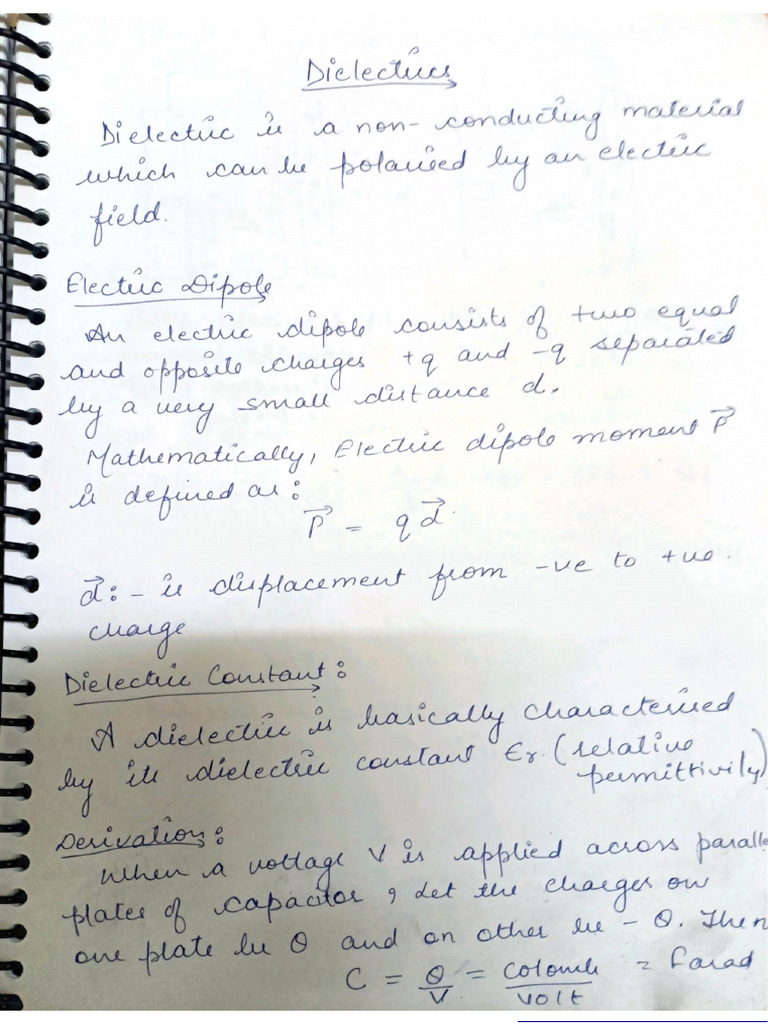 Dielectrics
Dielectric is a non-conducting material
which can be polarised by an electric
field.
Electric Dipole
An electric dipole consists of two equal
and opposite charges +q and -q separated
by a very small distance d.
Mathematically, Electric dipole moment P⃗
is defined as:
P⃗ = q d⃗
d⃗:- is displacement from -ve to +ve
charge
Dielectric Constant:
A dielectric is basically characterised
by its dielectric constant Єr. (relative
permittivity)
Derivation:
When a voltage V is applied across paralle
plates of capacitor, Let the charges on
one plate be Q and on other be - Q. Then
C = Q/V = Colomb/volt = Farad